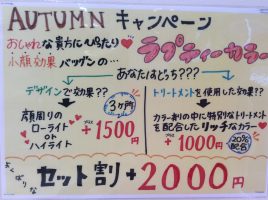 AUTUMN キャンペーン
おしゃれな貴方にぴったり♥
小顔効果バツグンの…
ラブティーカラー
あなたはどっち???
デザインで効果??
3ヶ月
顔周りの
ローライト
or
ハイライト
プラス
+1500円
トリートメントを使用した効果??
カラー剤の中に特別なトリートメント
を配合したリッチなカラー♥
プラス
+1000円
20%
配合
よくばりな
セット割+2000円